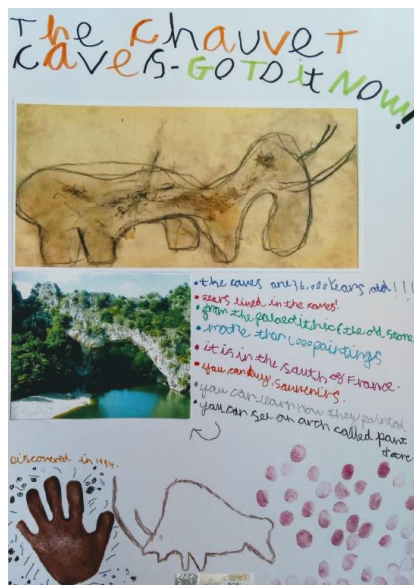 The chauvet
caves - GO TO it NOW!
• the caves are 36.000 years old!!!
• Bears lived in the caves!
• from the palaeolithic (the old stone
• more than 1000 paintings
• it is in the south of France.
• you can buy souvenirs.
• you can learn how they painted
• you can see an arch called pont
d'arc
discovered in 1994.